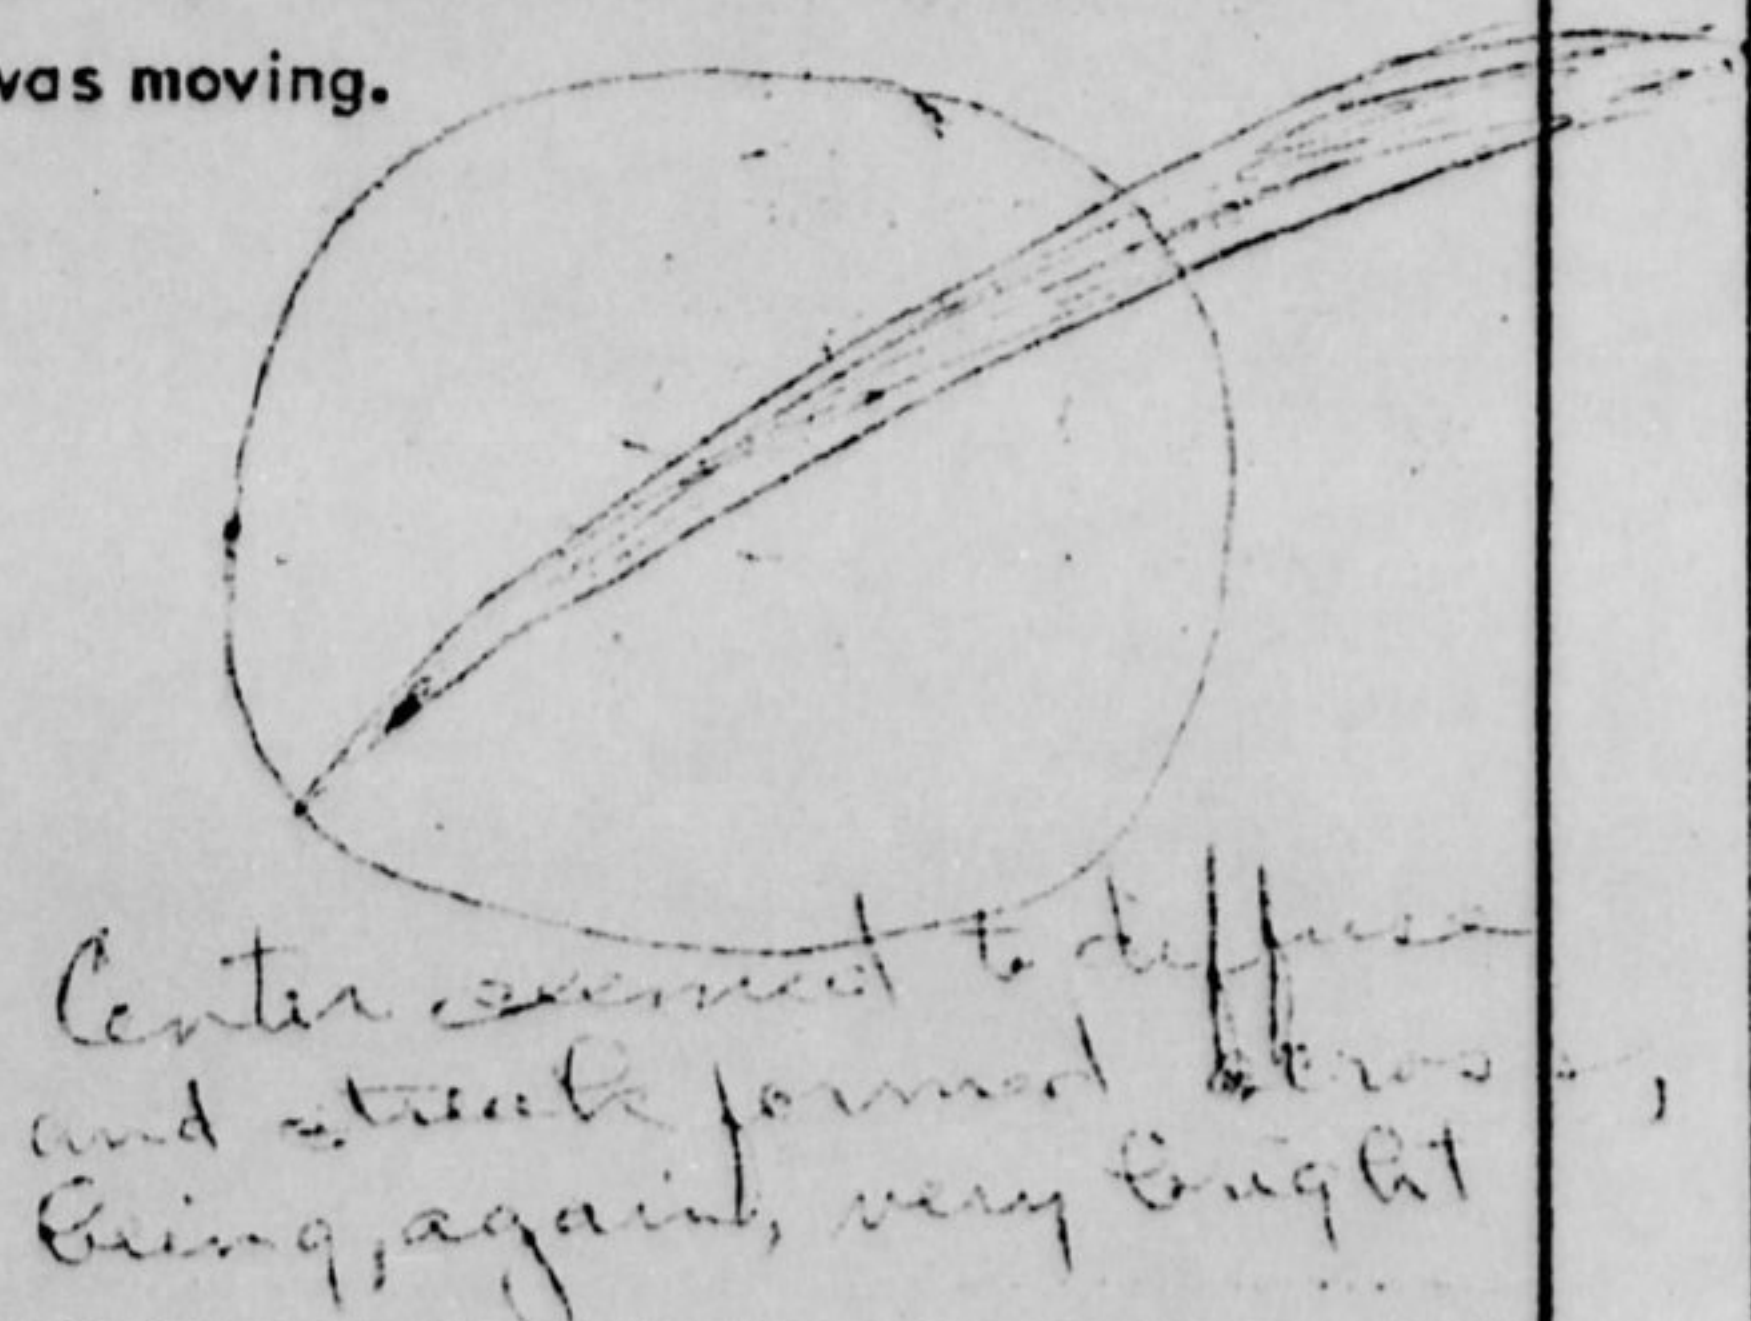 was moving.
Center seemed to diffuse
and streak formed across,
being, again, very bright